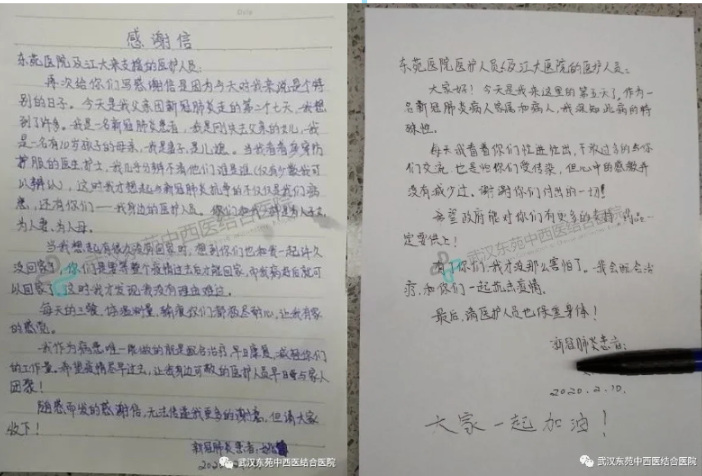 感谢信
东苑医院及江大来支援的医护人员:
再次给你们写感谢信是因为今天对我来说是个特
别的日子。今天是我父亲因新冠肺炎走的第二十七天,我想
到了许多。我是一名新冠肺炎患者,我是刚失去父亲的女儿,我
是一名有10岁孩子的母亲,我是妻子,是儿媳。当我看着身穿防
护服的医生护士,我几乎分辨不清他们谁是谁(仅有少数我可
以辨认),这时我才想起与新冠肺炎抗争的不仅仅是我们病
患,还有你们——我身边的医护人员。你们和我一样是为人子女,
为人妻,为人母。
当我想起有很久没有回家时,想到你们也和我一起许久
没回家了,你们是要等整个疫情过去后才能回家,而我病愈后就可
以回家了,这时我才发现我没有理由难过。
每天的三餐,体温测量,输液你们都极尽耐心,让我有家
的感觉。
我作为病患唯一能做的就是配合治疗,早日康复,减轻你们
的工作量。希望疫情尽早过去,让我身边可敬的医护人员早日能与家人
团聚!
随感而发的感谢信,无法信达我更多的谢意,但请大家
收下!
新冠肺炎患者:
202
东苑医院医护人员以及江大医院的医护人员:
大家好!今天是我来这里的第五天了,作为一
名新冠肺炎病人家属和病人,我深知此病的特
殊性。
每天我看着你们忙进忙出,不敢过多的和你
们交流,也是怕你们受传染,但心中的感激并
没有减少过。谢谢你们付出的一切!
希望政府能对你们有更多的支持,药品一
定要供上!
有了你们,我才没那么害怕了。我会配合治
疗,和你们一起抗击疫情。
最后,请医护人员也保重身体!
新冠肺炎患者:
2020.2.10.
大家一起加油!
武汉东苑中西医结合医院
武汉东苑中西医结合医院
武汉东苑中西医结合医院
武汉东苑中西医结合医院